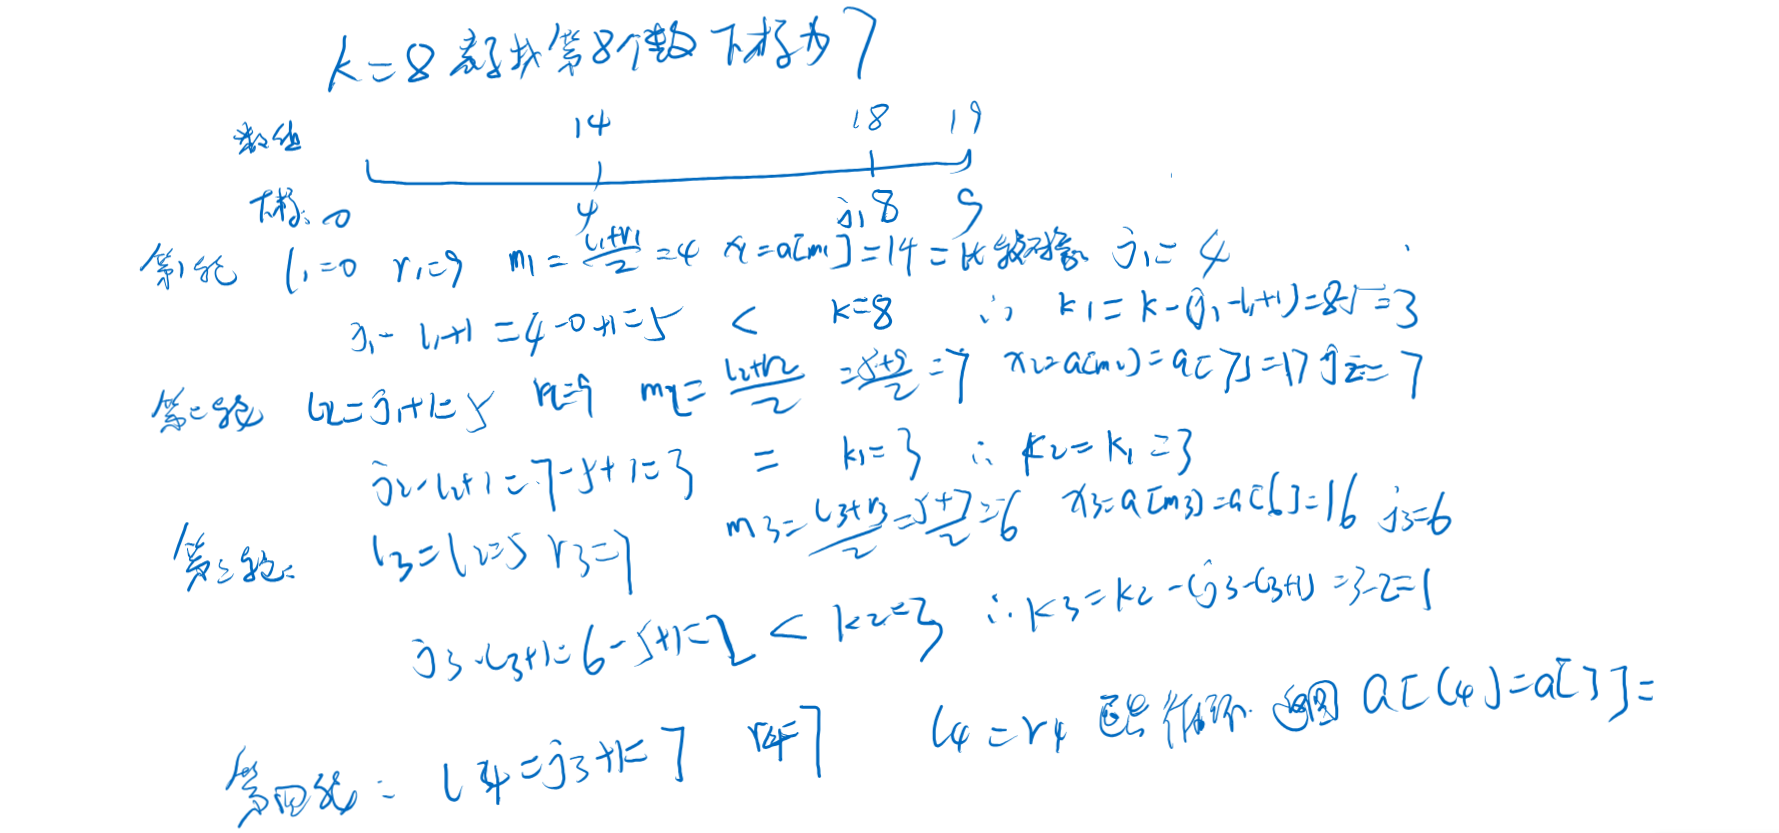 k=8 寻找第8个数 下标为7
数值 14 18 19
下标: 0 4 j1 8 9
第1轮 l1=0 r1=9 m1=(l1+r1)/2=4 x1=a[m1]=14=比较对象 j1=4
j1-l1+1=4-0+1=5 < k=8 ∴ k1=k-(j1-l1+1)=8-5=3
第二轮 l2=j1+1=5 r2=9 m2=(l2+r2)/2=(5+9)/2=7 x2=a[m2]=a[7]=17 j2=7
j2-l2+1=7-5+1=3 = k1=3 ∴ k2=k1=3
第三轮: l3=l2=5 r3=7 m3=(l3+r3)/2=(5+7)/2=6 x3=a[m3]=a[6]=16 j3=6
j3-l3+1=6-5+1=2 < k2=3 ∴ k3=k2-(j3-l3+1)=3-2=1
第四轮: l4=j3+1=7 r4=7 l4=r4 退出循环 返回 a[l4]=a[7]=